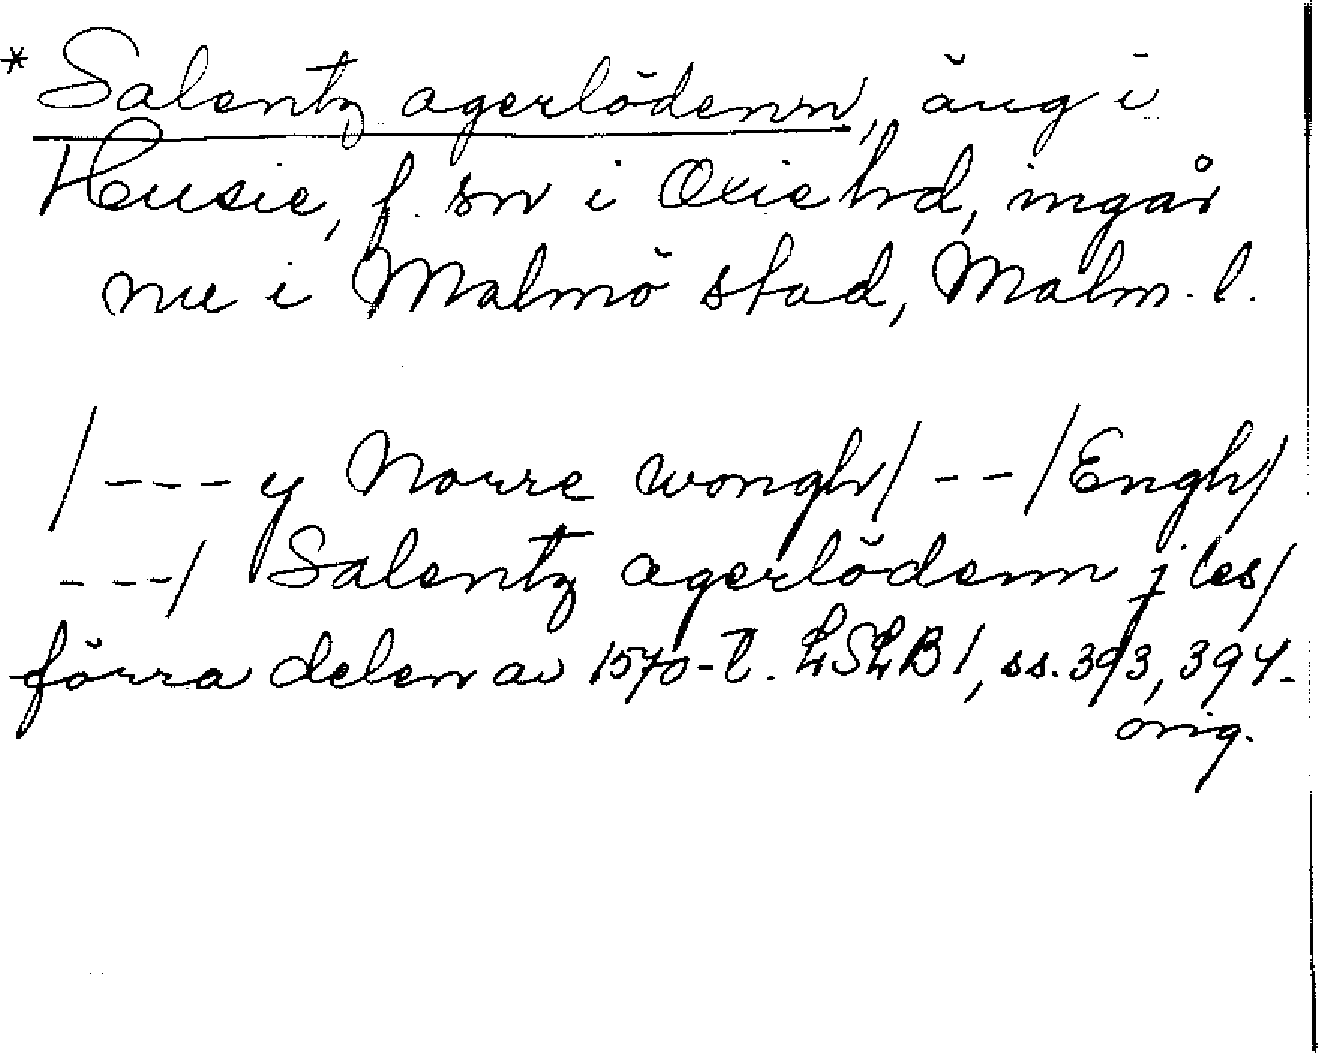 * Salentz agerlödenn, äng i
Husie, f. sn i Oxie hd, ingår
nu i Malmö stad, Malm. l.
/--- y Norre wongh/ --/Engh/
---/ Salentz agerlödenn j les/
förra delen av 1570-t. LSLB 1, ss. 393, 394.
orig.